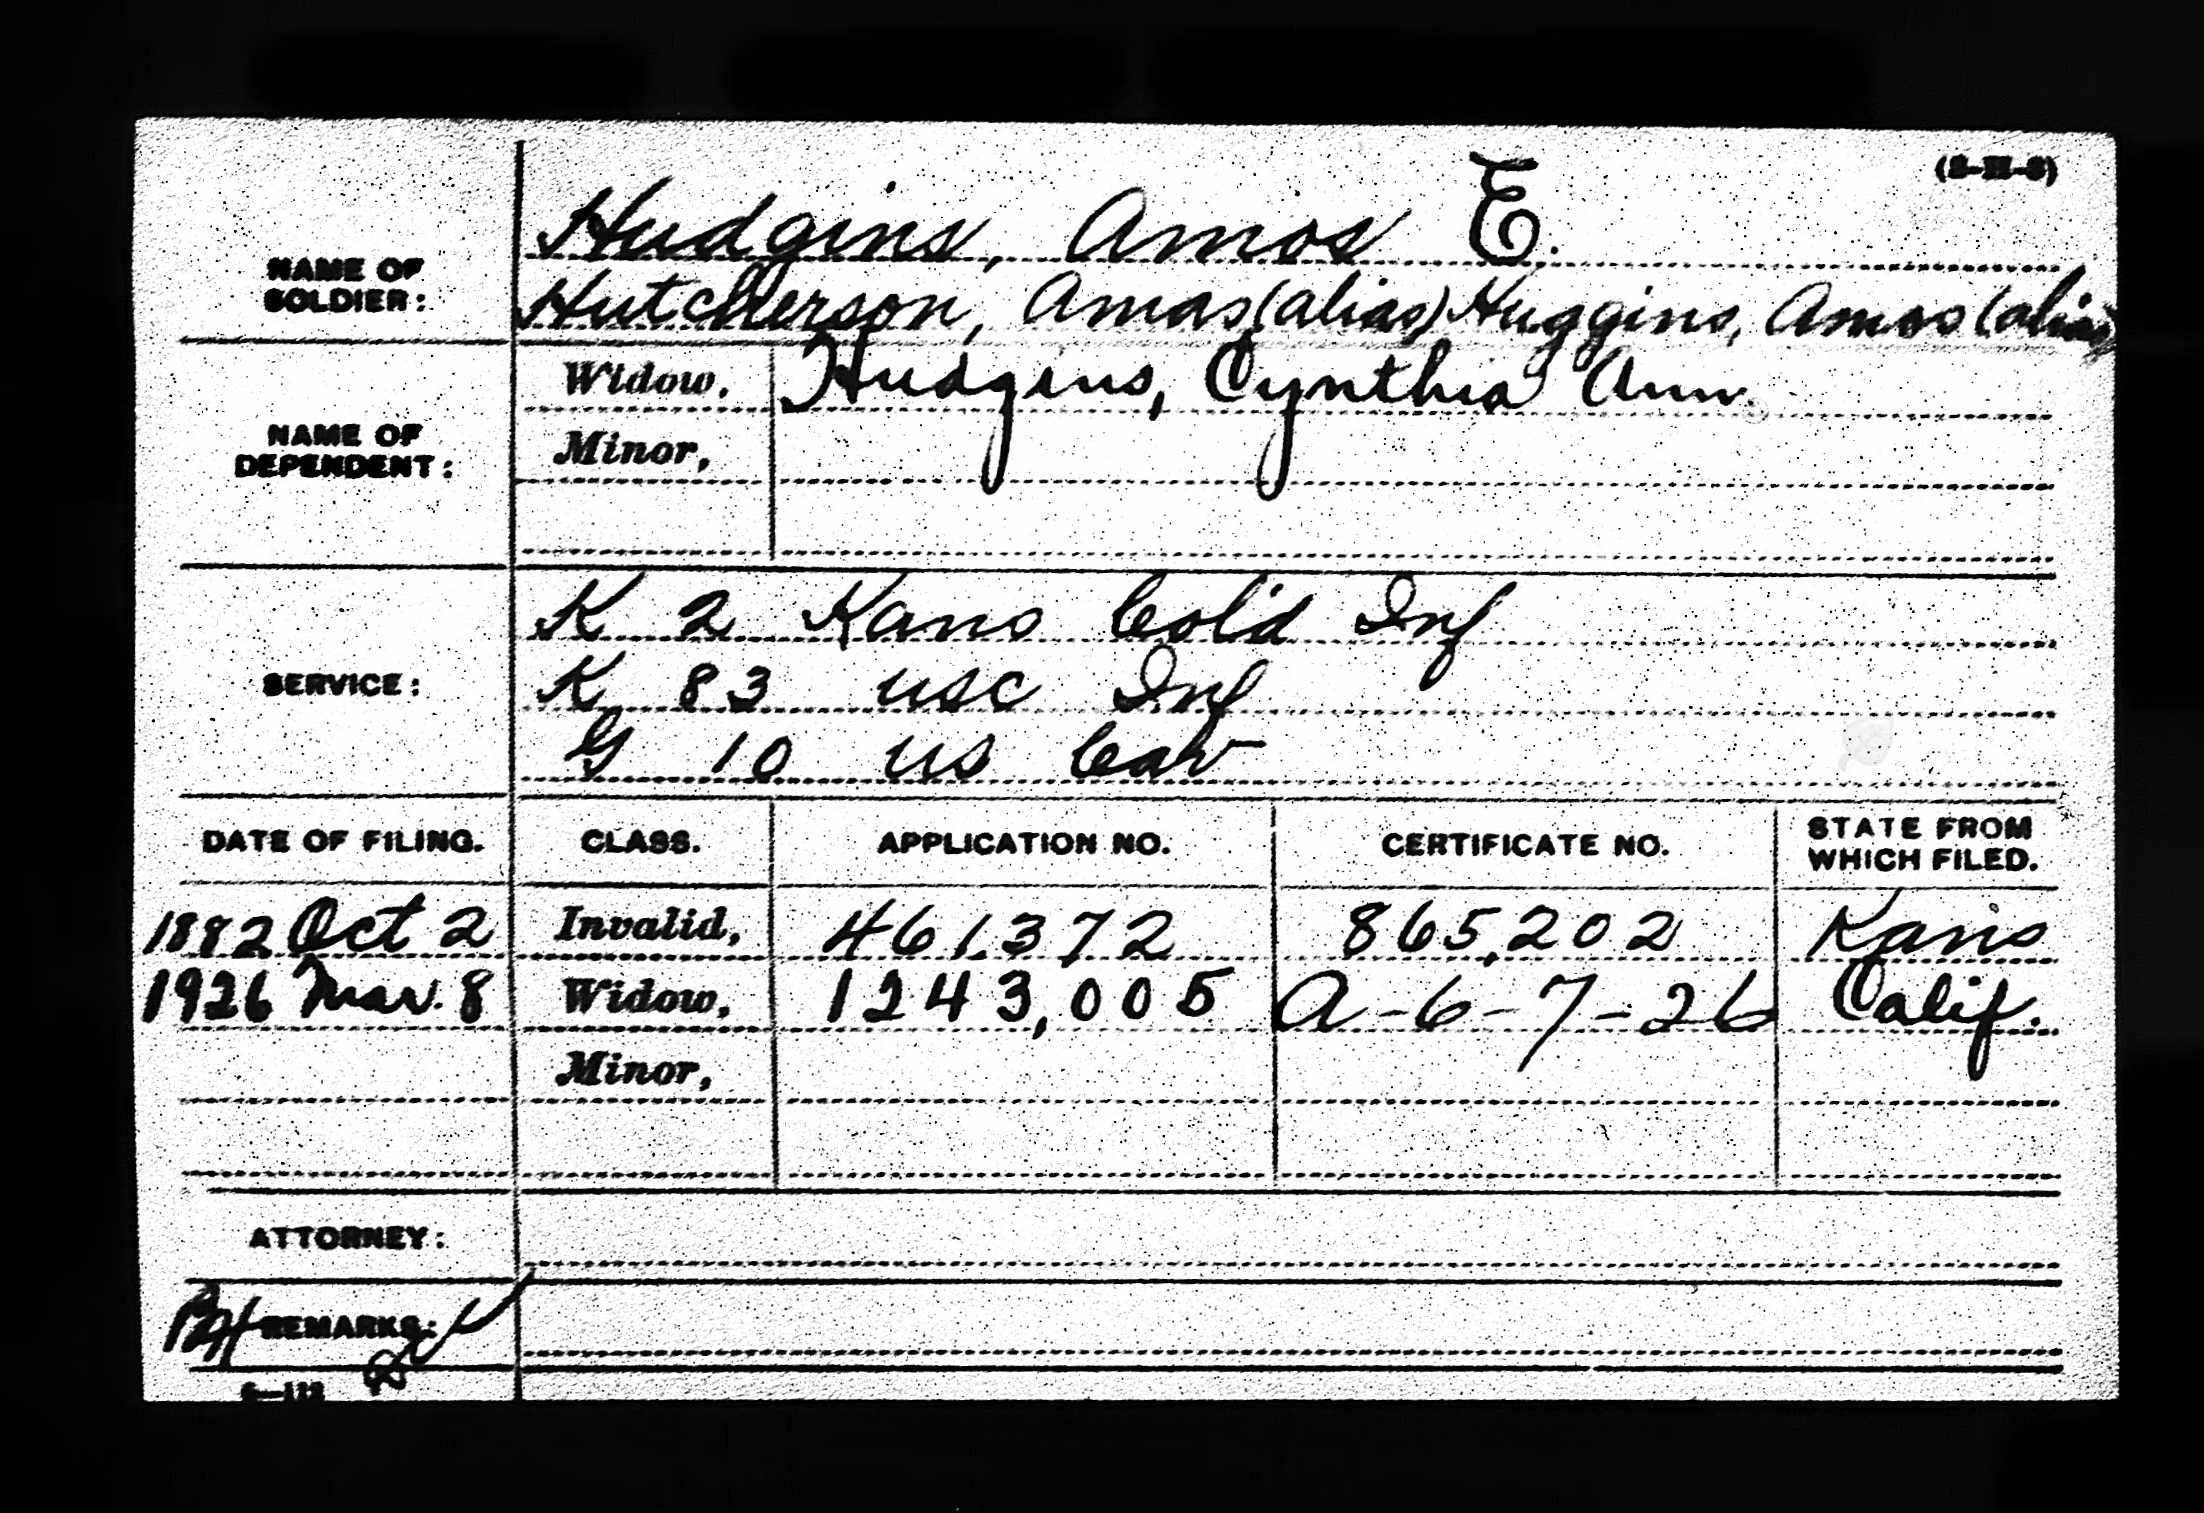 Hudgins, Amos E.
NAME OF
SOLDIER:
Hutcherson, Amos (alias) Huggins, Amos (alias)
Widow, Hudgins, Cynthia Ann.
NAME OF
DEPENDENT:
Minor,
K 2 Kans Col'd Inf
SERVICE: K 83 USC Inf
G 10 US Cav
DATE OF FILING. CLASS. APPLICATION NO. CERTIFICATE NO. STATE FROM
WHICH FILED.
1882 Oct 2 Invalid, 461,372 865,202 Kans
1926 Mar. 8 Widow, 1243,005 A-6-7-26 Calif.
Minor,
ATTORNEY:
REMARKS: